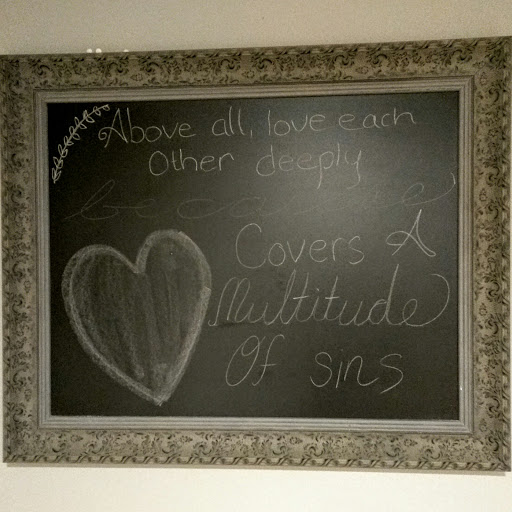 Above all, love each
Other deeply
because
Covers A
Multitude
Of sins